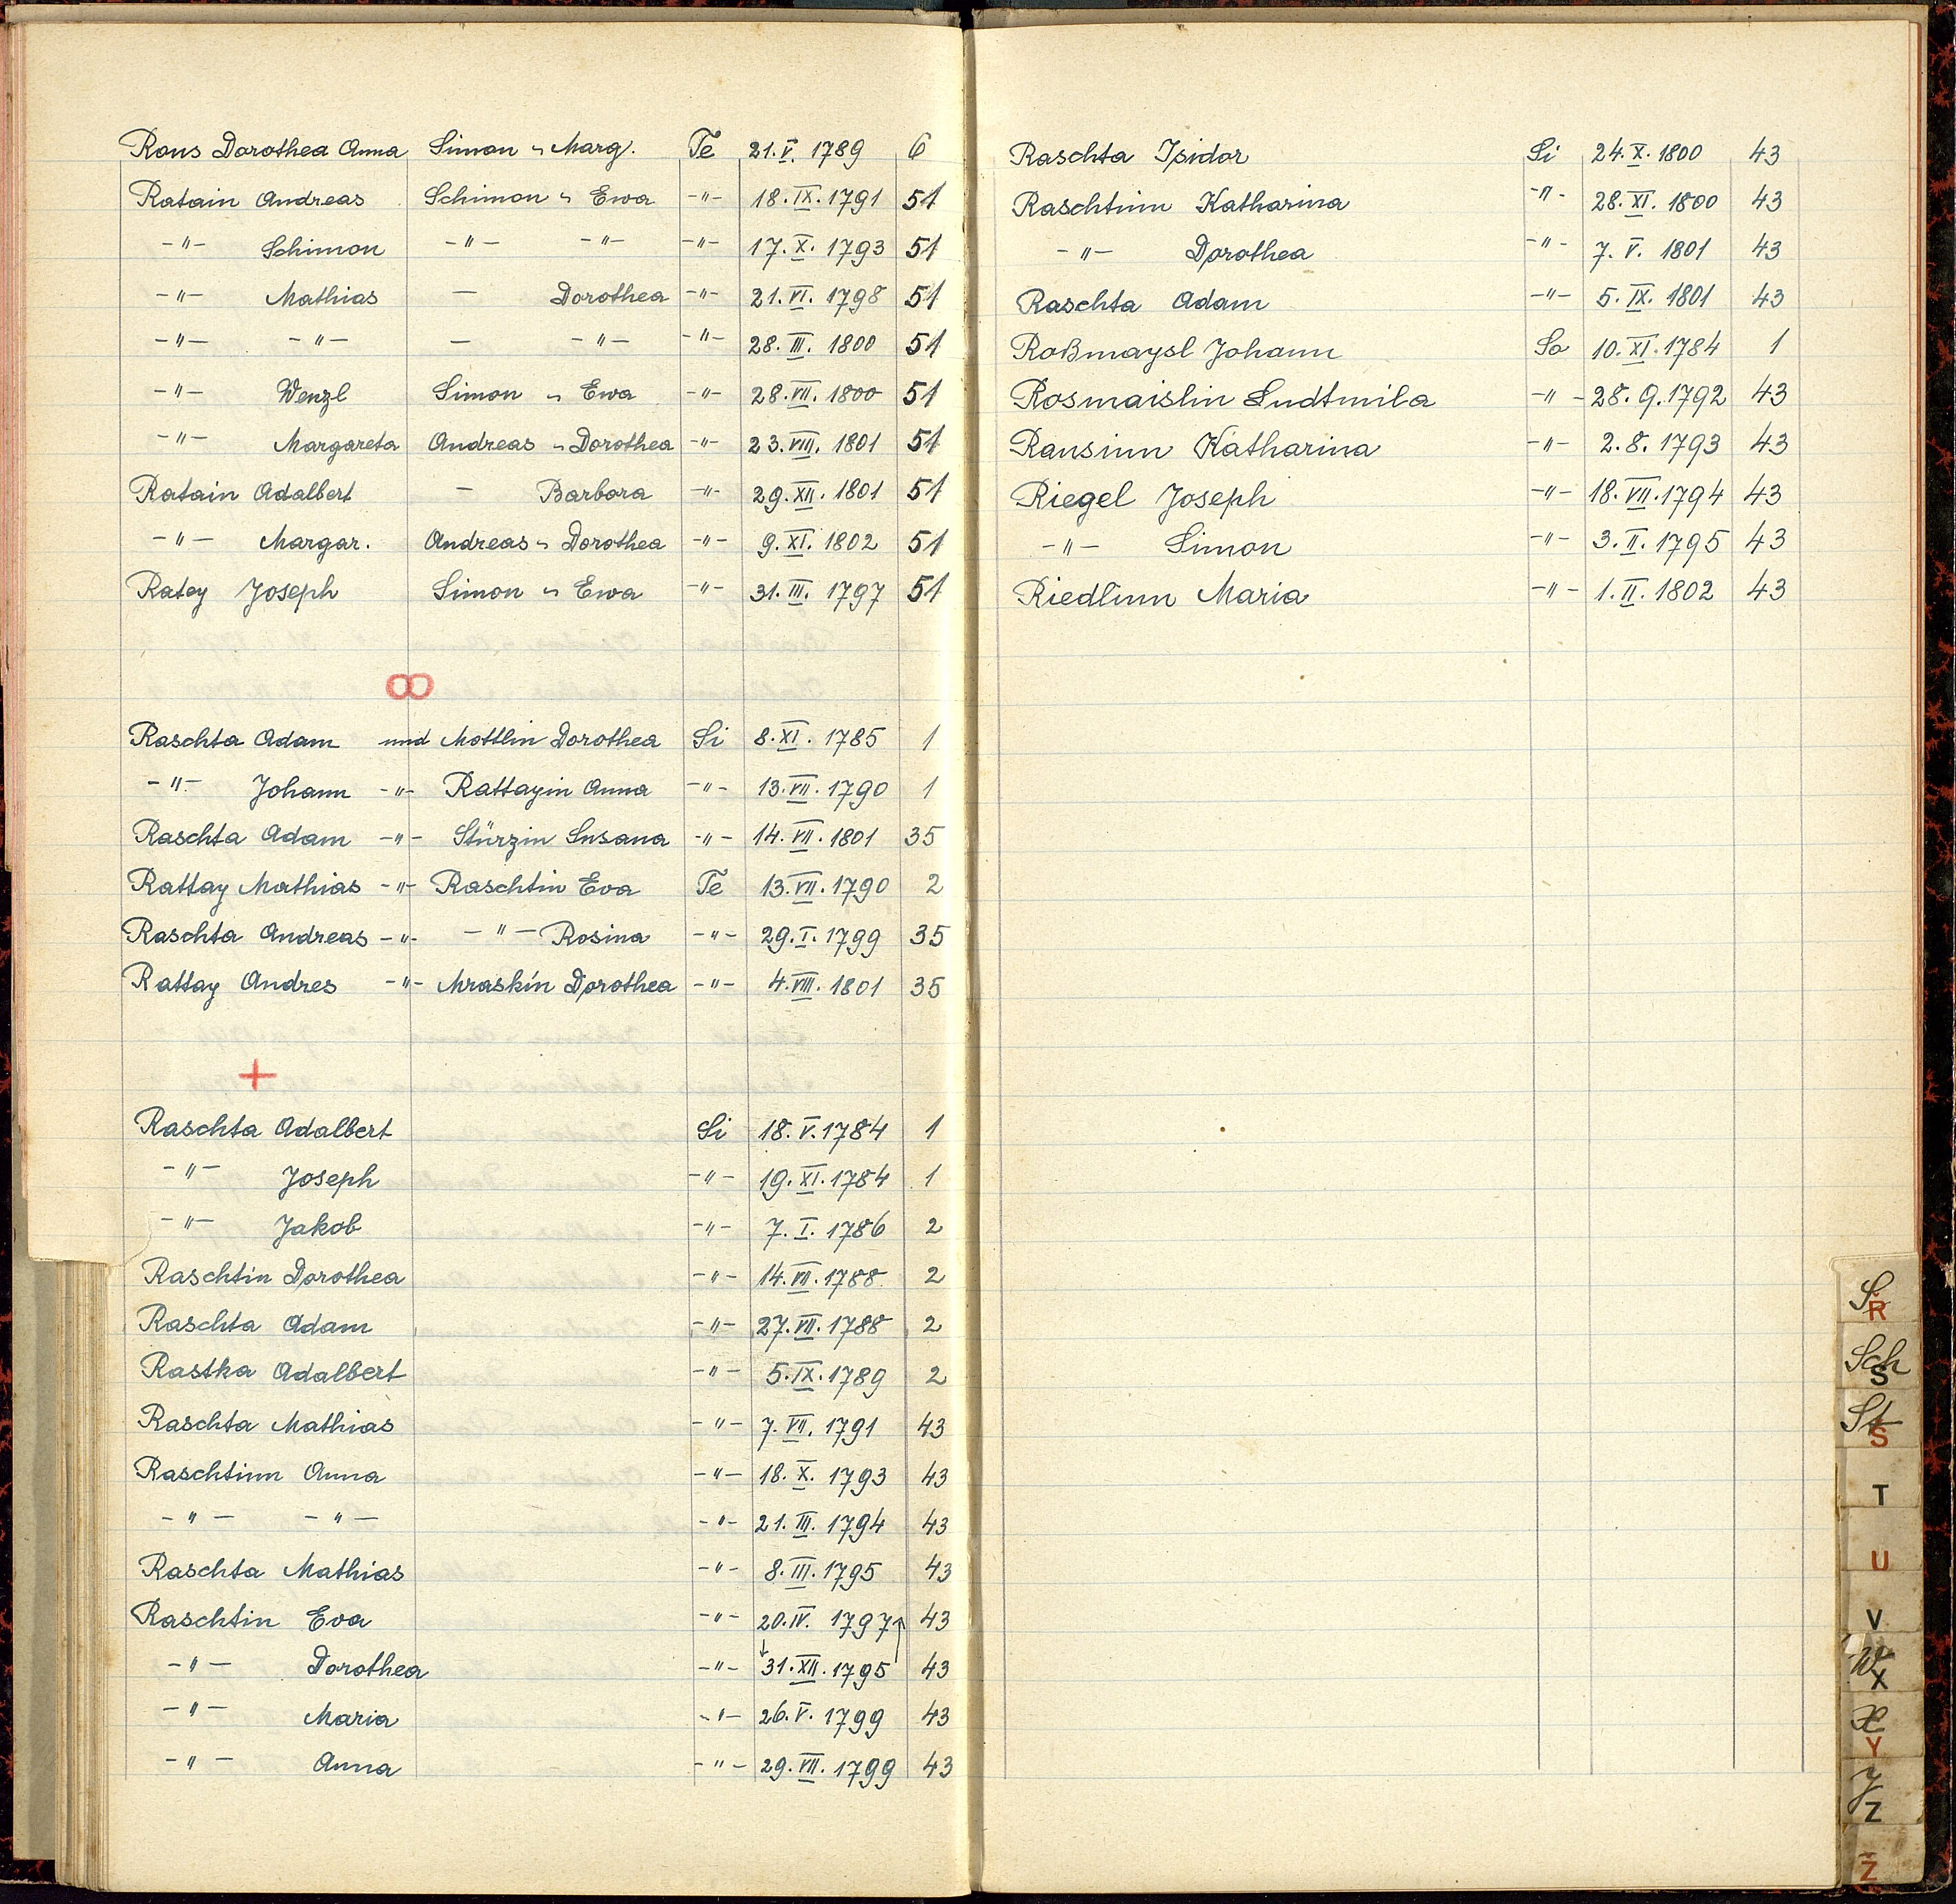 Rons Dorothea Anna Simon u Marg. Te 21. V. 1789 6
Ratain Andreas Schimon u Ewa -"- 18. IX. 1791 51
-"- Schimon -"- -"- -"- 17. X. 1793 51
-"- Mathias — Dorothea -"- 21. VI. 1798 51
-"- -"- — -"- -"- 28. III. 1800 51
-"- Wenzl Simon u Ewa -"- 28. VII. 1800 51
-"- Margareta Andreas u Dorothea -"- 23. VIII. 1801 51
Ratain Adalbert — Barbora -"- 29. XII. 1801 51
-"- Margar. Andreas u Dorothea -"- 9. XI. 1802 51
Ratey Joseph Simon u Ewa -"- 31. III. 1797 51
∞
Raschta Adam und Mottlin Dorothea Si 8. XI. 1785 1
-"- Johann -"- Rattayin Anna -"- 13. VII. 1790 1
Raschta Adam -"- Stürzin Susana -"- 14. VII. 1801 35
Rattay Mathias -"- Raschtin Eva Te 13. VII. 1790 2
Raschta Andreas -"- -"- Rosina -"- 29. I. 1799 35
Rattay Andres -"- Mraskin Dorothea -"- 4. VIII. 1801 35
+
Raschta Adalbert Si 18. V. 1784 1
-"- Joseph -"- 19. XI. 1784 1
-"- Jakob -"- 7. I. 1786 2
Raschtin Dorothea -"- 14. VII. 1788 2
Raschta Adam -"- 27. VII. 1788 2
Rastka Adalbert -"- 5. IX. 1789 2
Raschta Mathias -"- 7. VII. 1791 43
Raschtinn Anna -"- 18. X. 1793 43
-"- -"- -"- 21. III. 1794 43
Raschta Mathias -"- 8. III. 1795 43
Raschtin Eva -"- 20. IV. 1797 43
-"- Dorothea -"- 31. XII. 1795 43
-"- Maria -"- 26. V. 1799 43
-"- Anna -"- 29. VII. 1799 43
Raschta Isidor Si 24. X. 1800 43
Raschtinn Katharina -"- 28. XI. 1800 43
-"- Dorothea -"- 7. V. 1801 43
Raschta Adam -"- 5. IX. 1801 43
Roßmaysl Johann So 10. XI. 1784 1
Rosmaislin Ludtmila -"- 28. 9. 1792 43
Ransinn Katharina -"- 2. 8. 1793 43
Riegel Joseph -"- 18. VII. 1794 43
-"- Simon -"- 3. II. 1795 43
Riedlinn Maria -"- 1. II. 1802 43
S Ř
Sch S
St Š
T
U
V
W X
X Y
Y Z
Ž